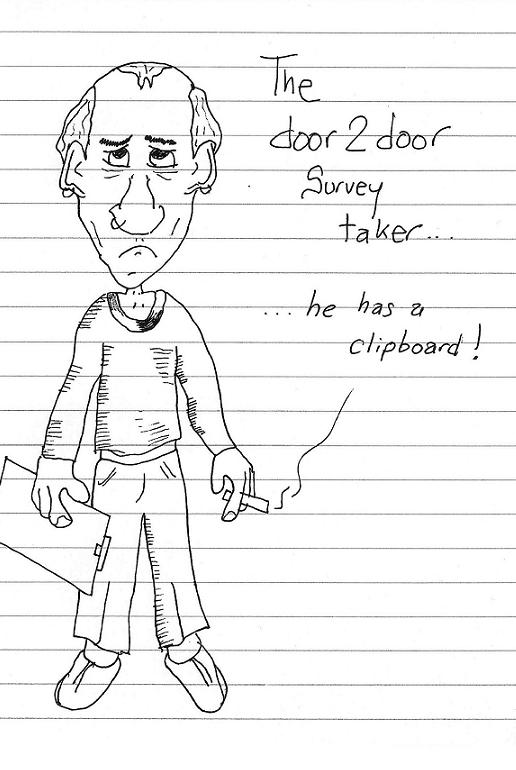 The
door 2 door
Survey
taker...
...he has a
clipboard!